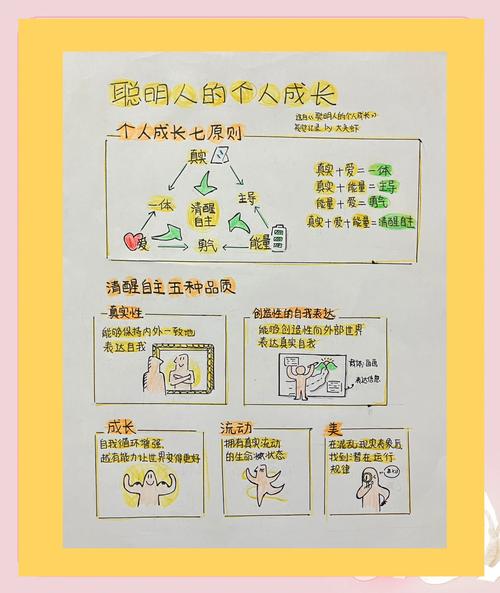 聪明人的个人成长
选自《聪明人的个人成长》
视觉记录 by 大夹虾
个人成长七原则
真实
一体
清醒
自主
主导
爱
勇气
能量
真实+爱=一体
真实+能量=主导
能量+爱=勇气
真实+爱+能量=清醒自主
清醒自主五种品质
真实性
能够保持内外一致地
表达自我
创造性的自我表达
能够创造性向外部世界
表达真实自我
载体:画画
表达信息
成长
自我循环增强
越有能力让世界变得更好
流动
拥有真实流动
的生命状态
美
在混乱现实表象后
找到潜在运行
规律